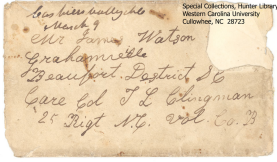 Special Collections, Hunter Library
Western Carolina University
Cullowhee, NC 28723
March 9
Mr James Watson
Grahamville
Beaufort District SC
Care Col T L Clingman
25 Rigt N.C. Vol. Co. B